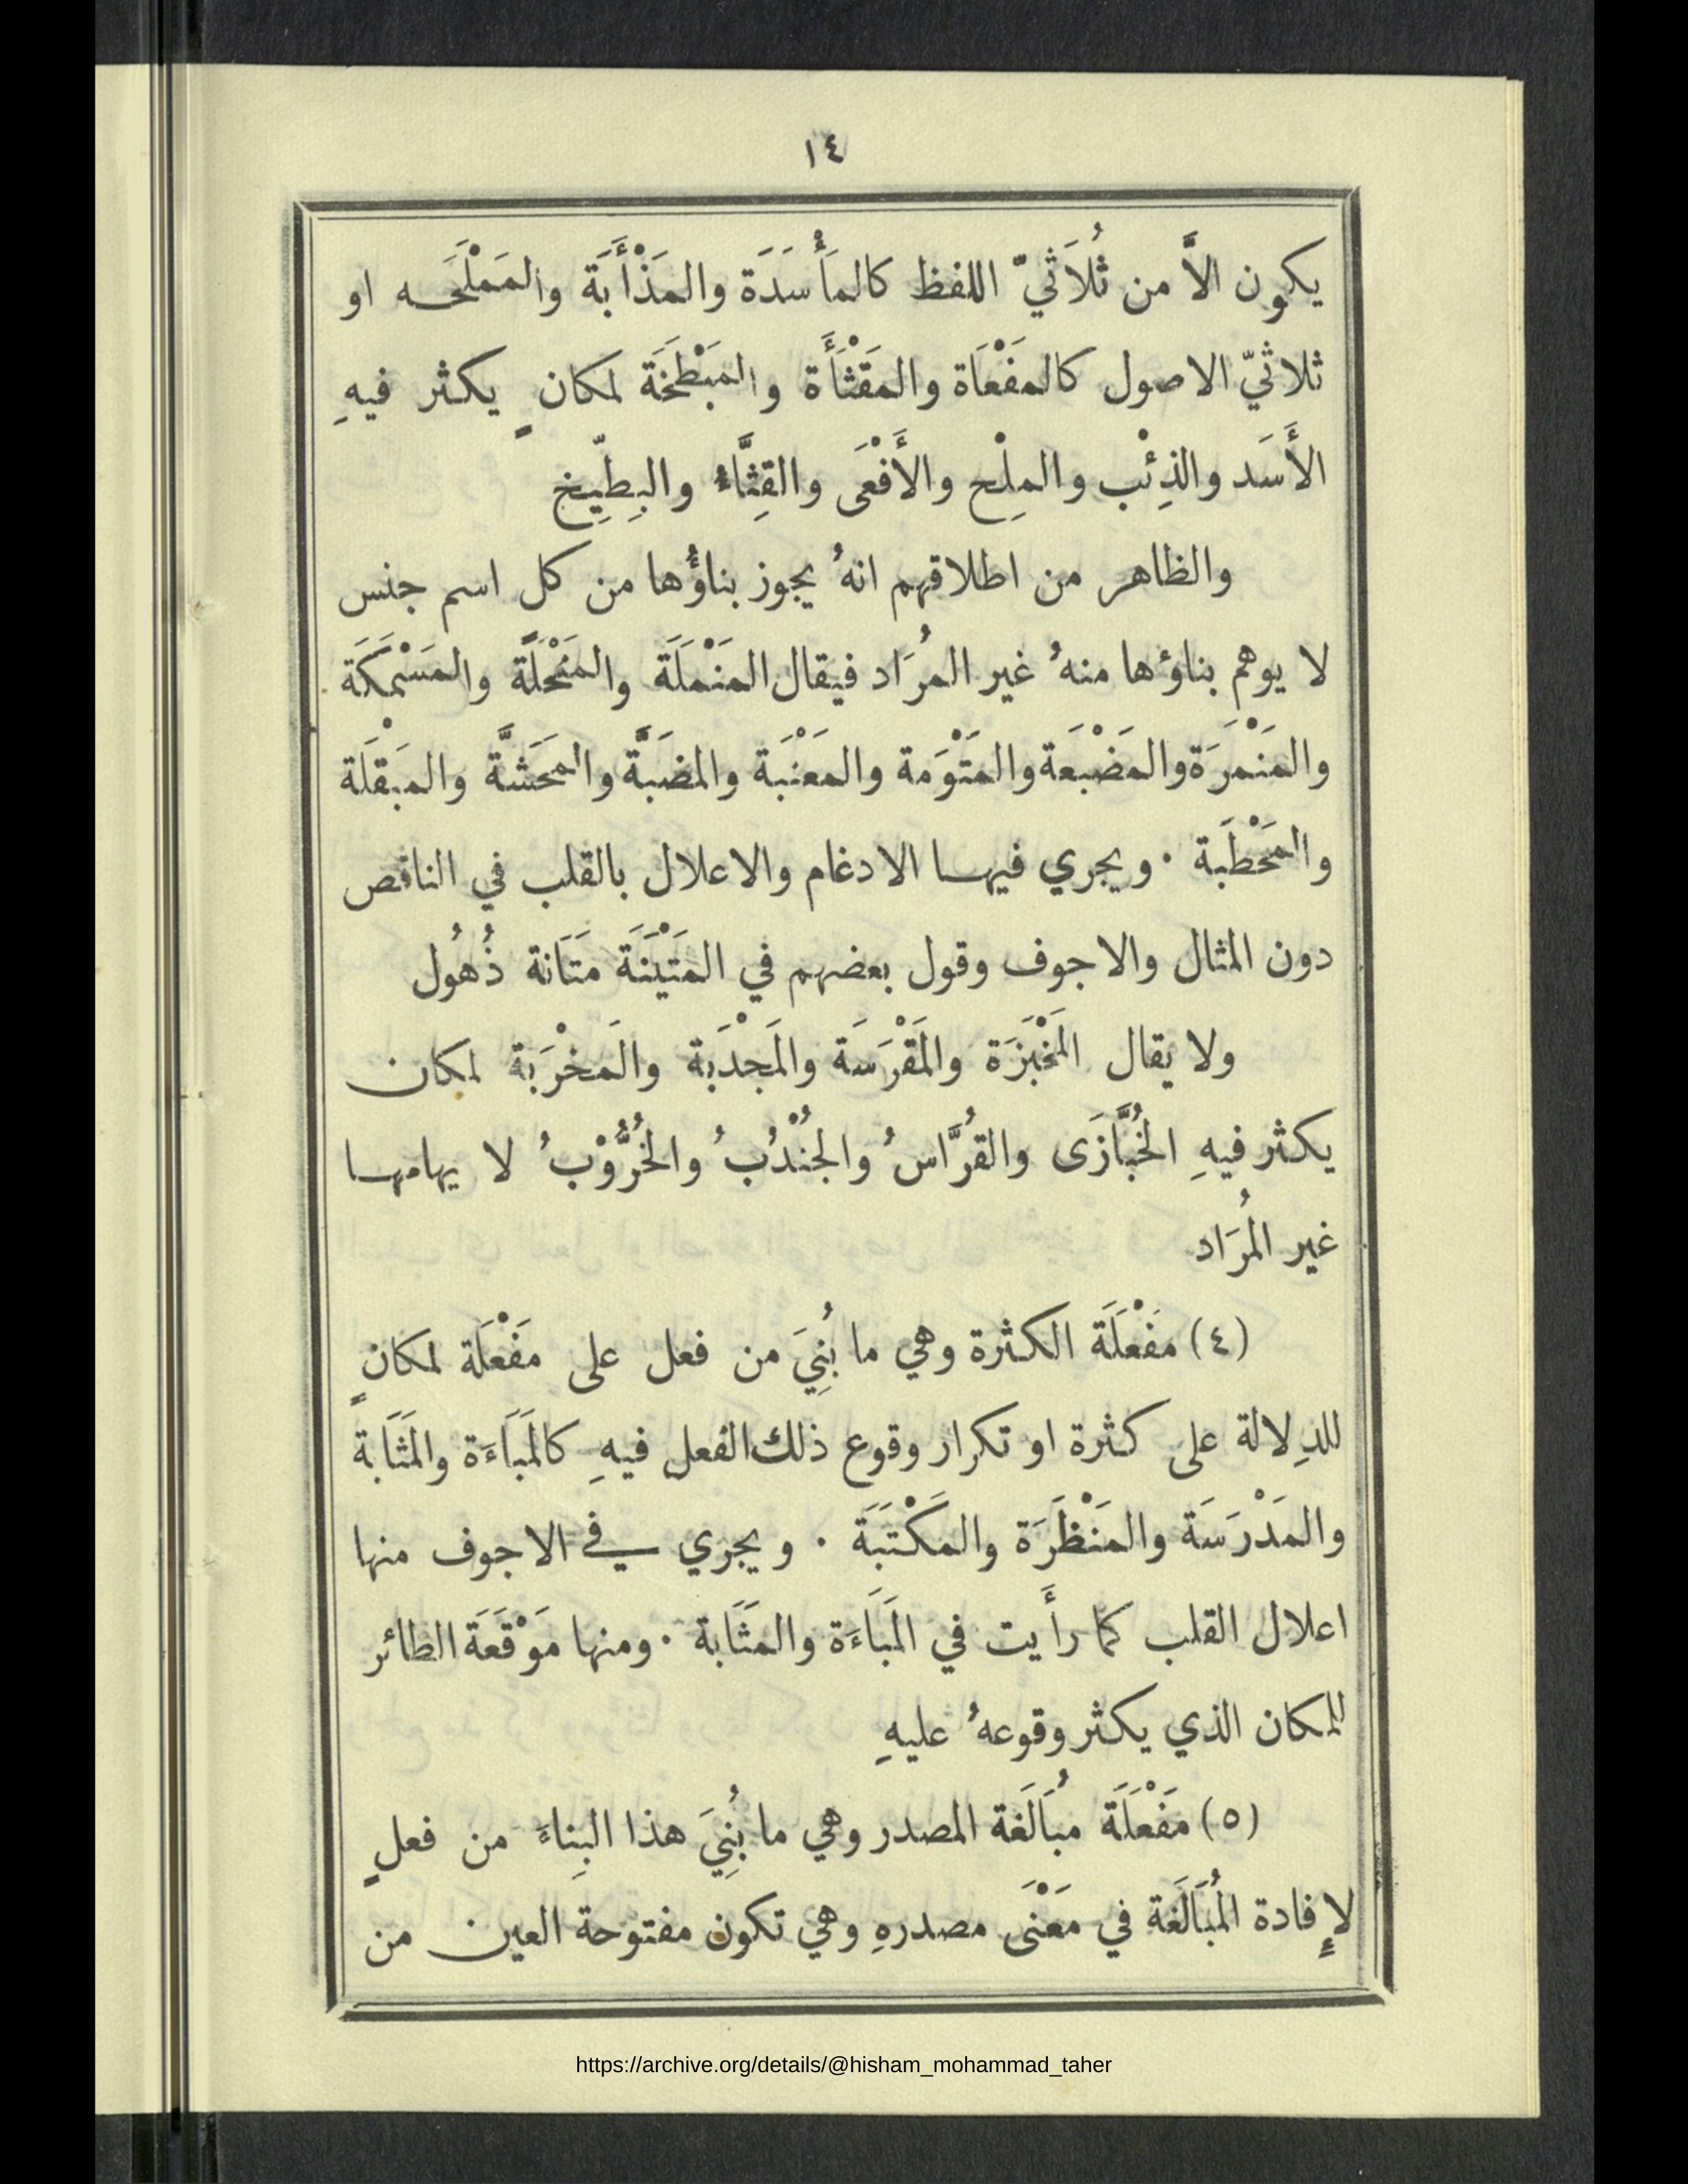 ١٤
يكون الاَّ من ثُلاَثيّ اللفظ كالمأْسَدَة والمَذْأَبَة والمَمْلَحَه او
ثلاثيّ الاصول كالمفْعَاة والمَقْثَأَة والمَبْطَخَة لمكانٍ يكثر فيهِ
الأَسَد والذِئْب والمِلْح والأَفْعَى والقِثَّاءُ والبِطِّيخ
والظاهر من اطلاقهم انهُ يجوز بناؤُها من كل اسم جنس
لا يوهم بناؤها منهُ غير المرُاد فيقال المَنْمَلَة والمَنْحَلَة والمَسْمَكَة
والمَنْمَرَة والمَضْبَعَة والمَتْوَمة والمَعْنَبَة والمضَبَّة والمَحَشَّة والمَبْقَلَة
والمَحْطَبة ٠ ويجري فيها الادغام والاعلال بالقلب في الناقص
دون المثال والاجوف وقول بعضهم في المَتْيَنَة مَتَانة ذُهُول
ولا يقال المَخْبَزَة والمَقْرَسَة والمَجْدَبَة والمَخْرَبَة لمكان
يكثر فيهِ الخُبَّازَى والقُرَّاسُ والجُنْدُبُ والخُرُّوْبُ لا يهامها
غير المُرَاد
(٤) مَفْعَلَة الكثرة وهي ما بُنِيَ من فعل على مَفْعَلَة لمكانٍ
للدِلالة على كثرة او تكرار وقوع ذلك الفعل فيهِ كالمَبَاءَة والمَثَابة
والمَدْرَسَة والمَنْظَرَة والمَكْتَبَة ٠ ويجري في الاجوف منها
اعلال القلب كما رأَيت في المَبَاءَة والمَثَابة ٠ ومنها مَوْقَعَة الطائر
للمكان الذي يكثر وقوعهُ عليهِ
(٥) مَفْعَلَة مُبَالَغة المصدر وهي ما بُنِيَ هذا البِناءَ من فعلٍ
لإِفادة المُبَالَغَة في مَعْنَى مصدرهِ وهي تكون مفتوحة العين من
https://archive.org/details/@hisham_mohammad_taher